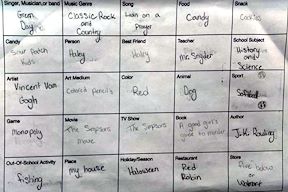 Singer, Musician, or band
Music Genre
Song
Food
Snack
Green Day
Classic Rock and Country
Livin on a prayer
Candy
Cookies
Candy
Person
Best Friend
Teacher
School Subject
Sour Patch Kids
Haley
Haley
Mr. Snyder
History and Science
Artist
Art Medium
Color
Animal
Sport
Vincent Van Gogh
Colored pencils
Red
Dog
Softball
Game
Movie
TV Show
Book
Author
Monopoly
The Simpsons Movie
The Simpsons
A good girl's guide to murder
J.K. Rowling
Out-Of-School Activity
Place
Holiday/Season
Restaurant
Store
fishing
my house
Halloween
Red Robin
Five below or Walmart